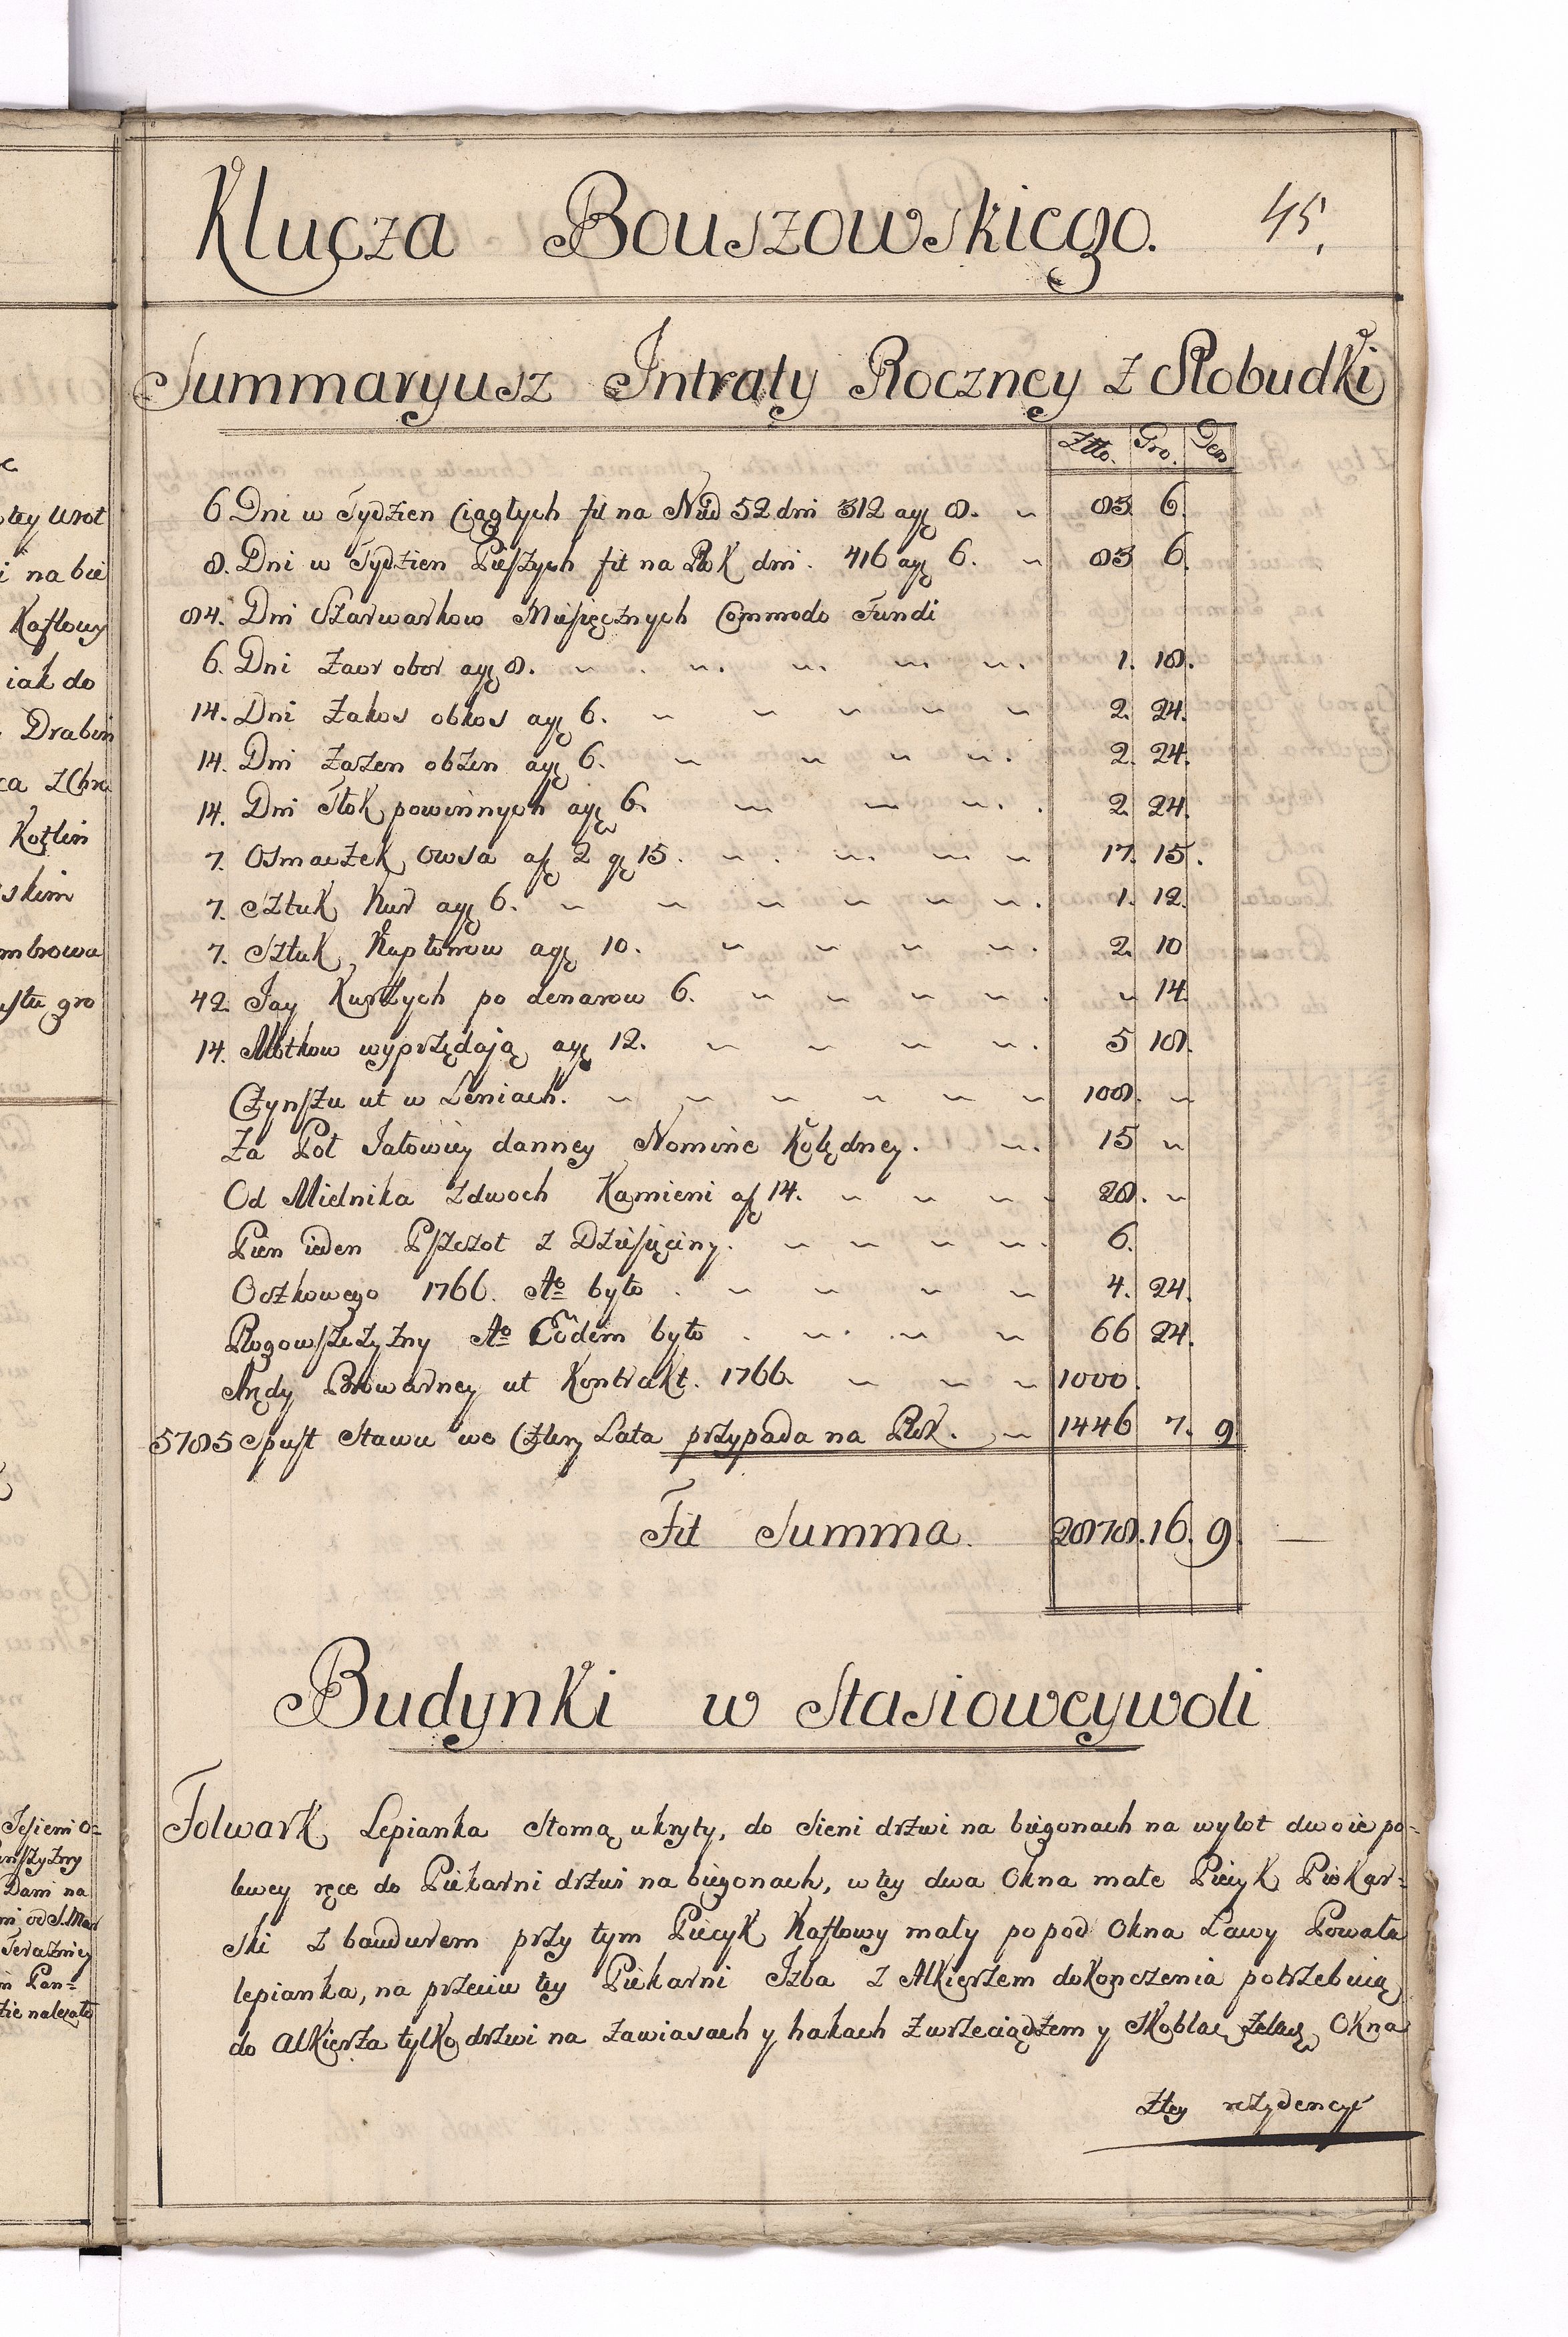 Klucza Bouszowskiego. 45.
Summaryusz Intraty Roczney z Słobudki
Złło. Gro. Den
6 Dni w Tydzien Ciągłych fit na Nud 52 dni 312 agę 8. 83 6.
8. Dni w Tydzien Pieszych fit na Rok dni. 416 agę 6. 83 6.
84. Dni Szarwarkow Miesięcznych Commodo Fundi
6. Dni Zaor obor agę 8. 1. 18.
14. Dni Zakos obkos agę 6. 2. 24.
14. Dni Zażen obżen agę 6. 2. 24.
14. Dni Tłok powinnych agę 6. 2. 24.
7. Osmaczek Owsa af 2 gę 15. 17. 15.
7. Sztuk Kur agę 6. 1. 12.
7. Sztuk Kapłonow agę 10. 2. 10
42. Jay Kurzych po denarow 6. 14.
14. Motkow wyprzędają agę 12. 5 18.
Czynszu ut w Leniach. 108.
Za Poł Jałowicy danney Nomine Kolędney. 15
Od Mielnika z dwoch Kamieni af 14. 28.
Pien ieden Pszczoł z Dziesięciny. 6.
Oczkowego 1766. Ao było 4. 24.
Rogowszczyzny Ao Eodem było 66 24.
Arędy Browarney ut Kontrakt. 1766. 1000.
5785 Spust Stawu we Cztery Lata przypada na Rok. 1446 7. 9.
Fit Summa. 2878. 16. 9.
Budynki w Stasioweywoli
Folwark Lepianka Słomą ukryty, do Sieni drzwi na biegonach na wylot dwoie po-
lewey ręce do Piekarni drzwi na biegonach, w tey dwa Okna małe Piecyk Piekar-
ski z baudurem przy tym Piecyk Kaflowy mały popod Okna Ławy Powała
lepianka, na przeciw tey Piekarni Izba z Alkierzem dokonczenia potrzebuią
do Alkierza tylko drzwi na zawiasach y hakach z wrzeciądzem y Skoblac Okna
z tey rezydencyi